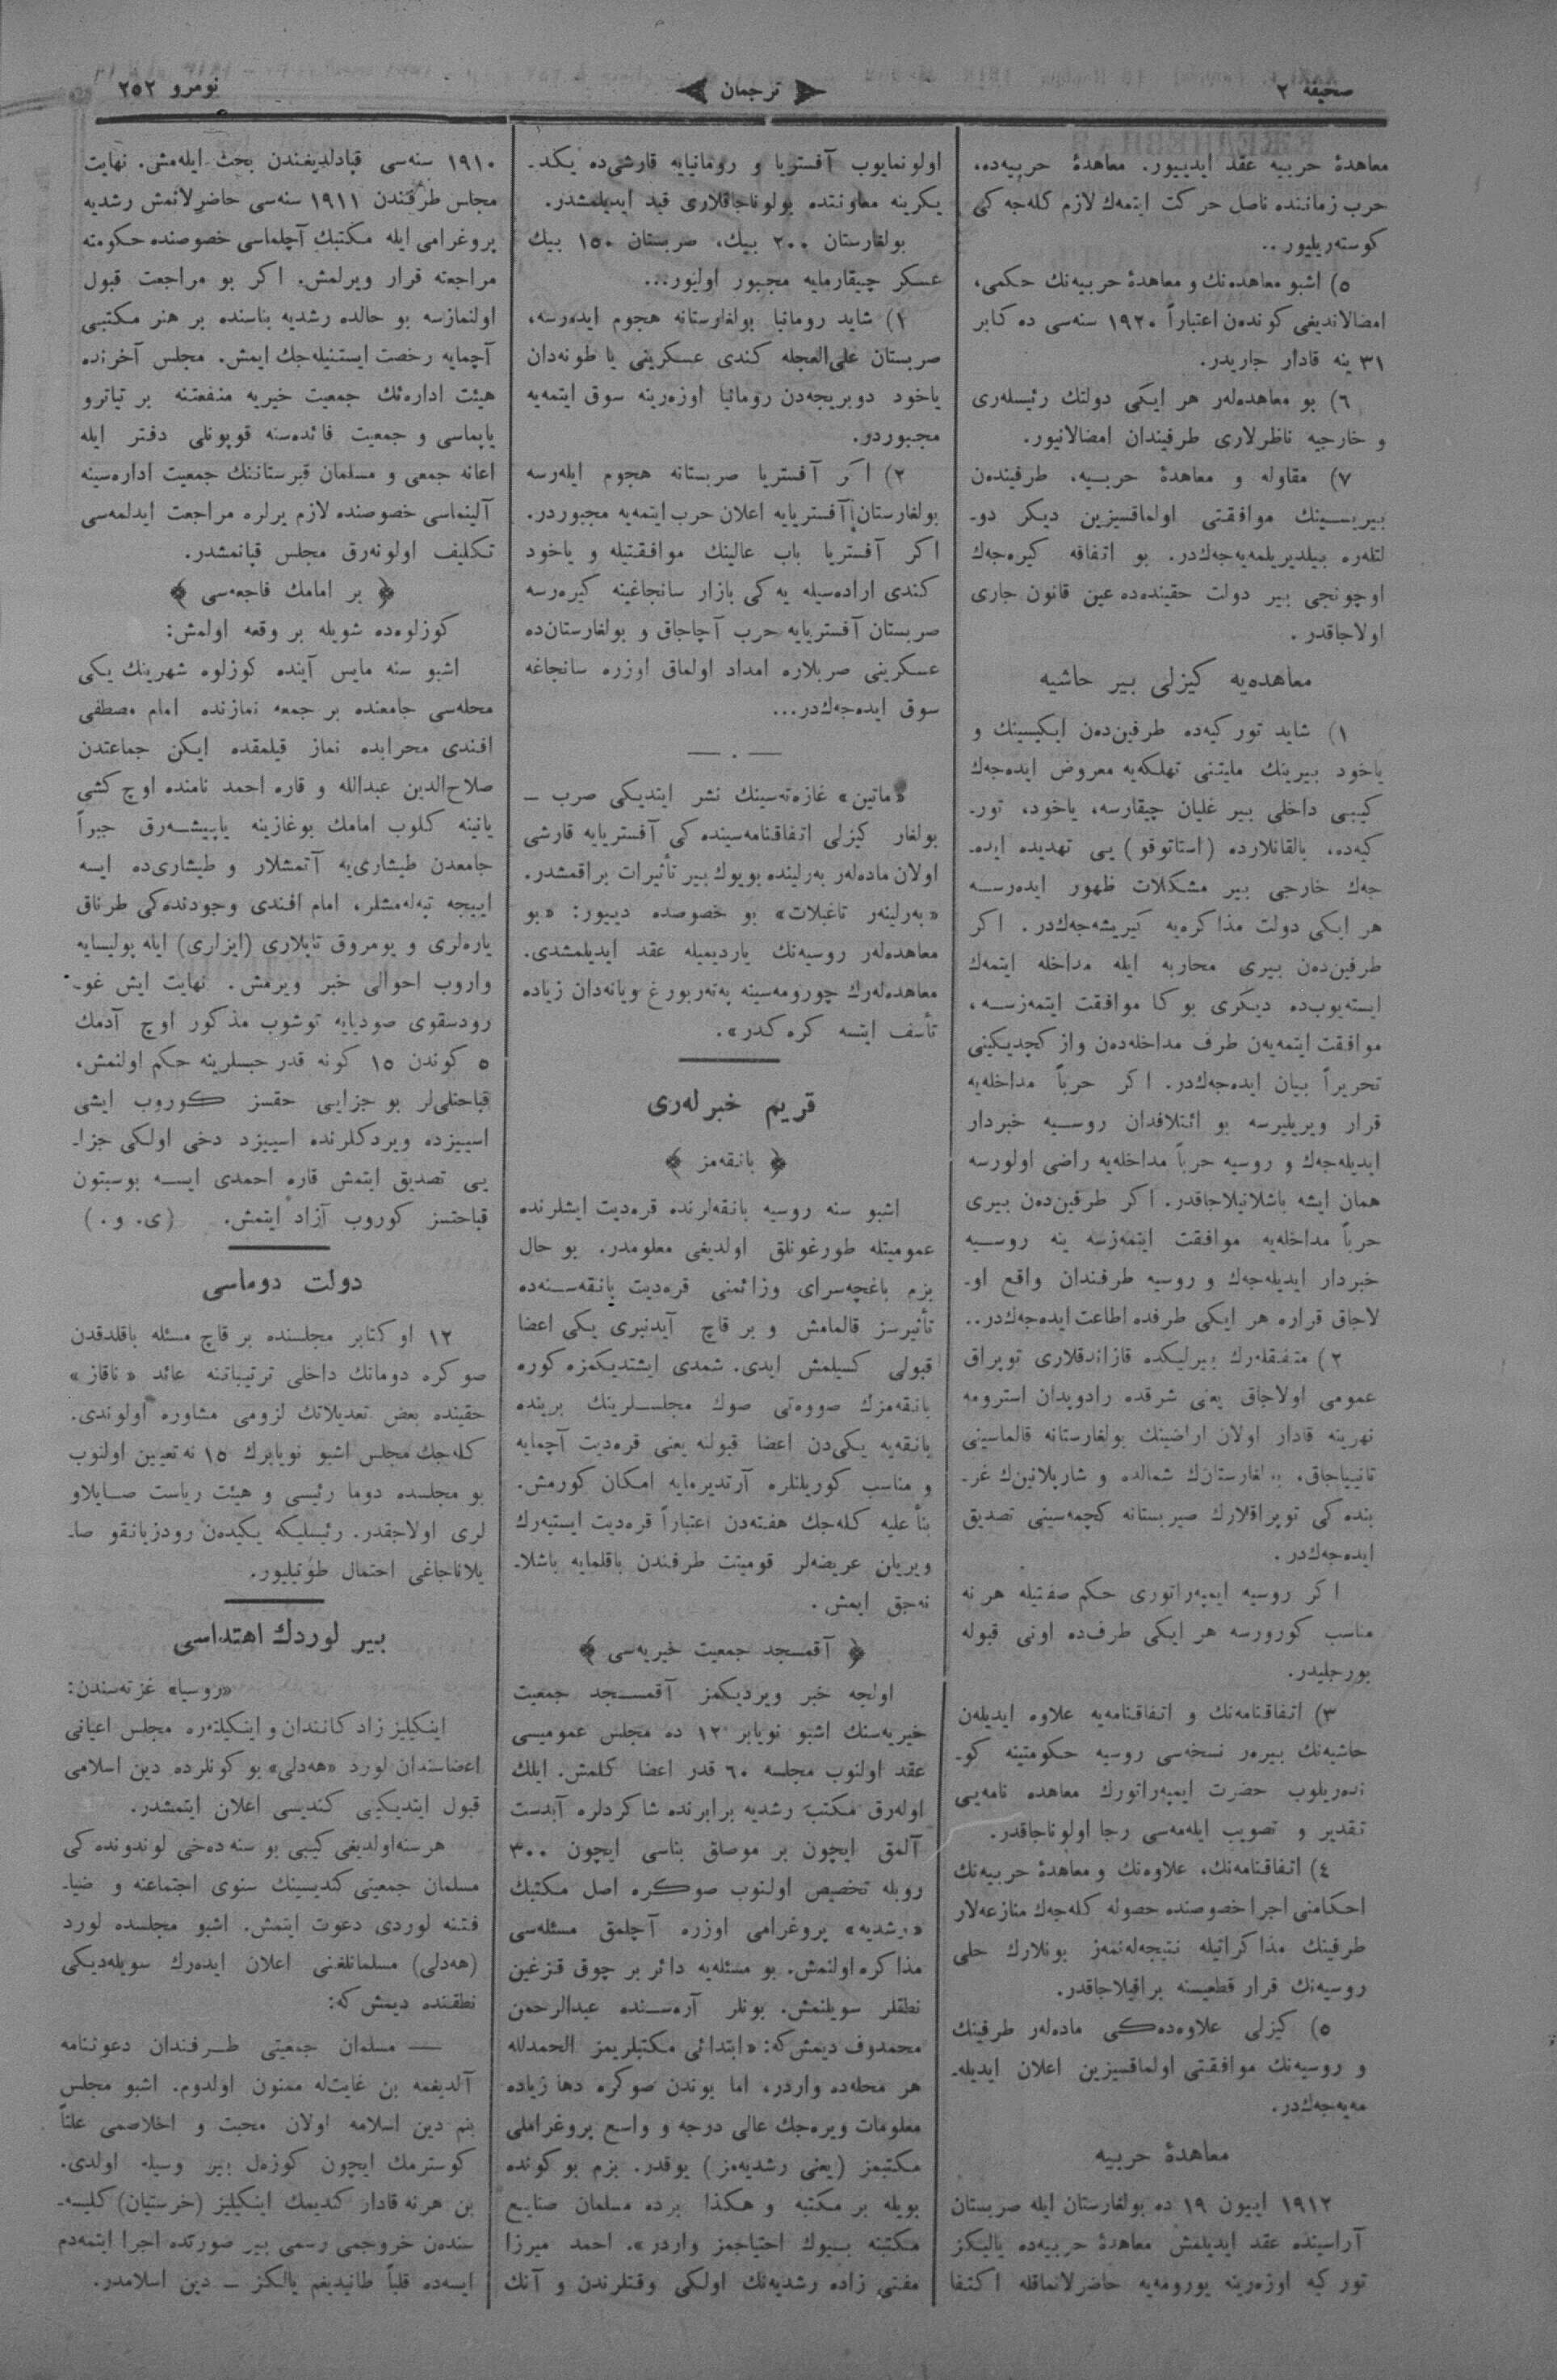 صحیفه ٢
ترجمان
نومرو ٢٥٢
معاهدۀ حربیه عقد ایدییور. معاهدۀ حربیه‌ده،
حرب زماننده ناصل حرکت ایتمه‌ك لازم کله‌جه کی
کوسته‌ریلیور..
٥) اشبو معاهده‌نك و معاهدۀ حربیه‌نك حکمی،
امضالاندیغی کونده‌ن اعتباراً ١٩٢٠ سنه‌سی ده‌کابر
٣١ ینه قادار جاریدر.
٦) بو معاهده‌له‌ر هر ایکی دولتك رئیسله‌ری
و خارجیه ناظرلاری طرفیندان امضالانیور.
٧) مقاوله و معاهدۀ حربیه، طرفینده‌ن
بیریسینك موافقتی اولماقسیزین دیکر دو-
لتله‌ره بیلدیریلمه‌یه‌جه‌ك‌در. بو اتفاقه کیره‌جه‌ك
اوچونجی بیر دولت حقینده‌ده عین قانون جاری
اولاجاقدر.
معاهده‌یه کیزلی بیر حاشیه
١) شاید تورکیه‌ده طرفین‌ده‌ن ایکیسینك و
یاخود بیرینك ملیتنی تهلکه‌یه معروض ایده‌جه‌ك
کیبی داخلی بیر غلیان چیقارسه، یاخود، تور-
کیه‌ده، بالقانلارده (استاتوقو) یی تهدیده ایده-
جه‌ك خارجی بیر مشکلات ظهور ایده‌رسه
هر ایکی دولت مذاکره‌یه کیریشه‌جه‌ك‌در. اکر
طرفین‌ده‌ن بیری محاربه ایله مداخله ایتمه‌ك
ایسته‌یوب‌ده دیکری بوکا موافقت ایتمه‌زسه،
موافقت ایتمه‌یه‌ن طرف مداخله‌ده‌ن واز کچدیکینی
تحریراً بیان ایده‌جه‌ك‌در. اکر حرباً مداخله‌یه
قرار ویریلیرسه بو ائتلافدان روسیه خبردار
ایدیله‌جه‌ك و روسیه حرباً مداخله‌یه راضی اولورسه
همان ایشه باشلانیلاجاقدر. اکر طرفین‌ده‌ن بیری
حرباً مداخله‌یه موافقت ایتمه‌زسه ینه روسیه
خبردار ایدیله‌جه‌ك و روسیه طرفندان واقع او-
لاجاق قراره هر ایکی طرفده اطاعت ایده‌جه‌ك‌در..
٢) متفقله‌رك بیرلیکده قازاندقلاری توپراق
عمومی اولاجاق یعنی شرقده رادوپدان استرومه
نهرینه قادار اولان اراضینك بولغارستانه قالماسینی
تانییاجاق، بولغارستان‌ك شمالده و شارپلانین‌ك غر-
بنده کی توپراقلارك صیربستانه کچمه‌سینی تصدیق
ایده‌جه‌ك‌در.
اکر روسیه ایمپه‌راتوری حکم صفتیله هر نه
مناسب کورورسه هر ایکی طرف‌ده اونی قبوله
بورجلیدر.
٣) اتفاقنامه‌نك و اتفاقنامه‌یه علاوه ایدیله‌ن
حاشیه‌نك بیره‌ر نسخه‌سی روسیه حکومتینه کو-
نده‌ریلوب حضرت ایمپه‌راتورك معاهده نامه‌یی
تقدیر و تصویب ایله‌مه‌سی رجا اولوناجاقدر.
٤) اتفاقنامه‌نك، علاوه‌نك و معاهدۀ حربیه‌نك
احکامنی اجرا خصوصنده حصوله کله‌جه‌ك منازعه‌لار
طرفینك مذاکراتیله نتیجه‌له‌نمه‌ز بونلارك حلی
روسیه‌نك قرار قطعیسنه براقیلاجاقدر.
٥) کیزلی علاوه‌ده‌کی ماده‌له‌ر طرفینك
و روسیه‌نك موافقتی اولماقسیزین اعلان ایدیله-
مه‌یه‌جه‌ك‌در.
معاهدۀ حربیه
١٩١٢ اییون ١٩ ده بولغارستان ایله صربستان
آراسینده عقد ایدیلمش معاهدۀ حربیه‌ده یالیکز
تورکیه اوزه‌رینه یورومه‌یه حاضرلانماقله اکتفا
اولونمایوب آفستریا و رومانیایه قارشی‌ده یکد-
یکرینه معاونتده بولوناجاقلاری قید ایدیلمشدر.
بولغارستان ٢٠٠ بیك، صربستان ١٥٠ بیك
عسکر چیقارمایه مجبور اولیور...
١) شاید رومانیا بولغارستانه هجوم ایده‌رسه،
صربستان علی‌العجله کندی عسکرینی یا طونه‌دان
یاخود دوبریجه‌دن رومانیا اوزه‌رینه سوق ایتمه‌یه
مجبوردر.
٢) اکر آفستریا صربستانه هجوم ایله‌رسه
بولغارستان آفستریایه اعلان حرب ایتمه‌یه مجبوردر.
اکر آفستریا باب عالینك موافقتیله و یاخود
کندی اراده‌سیله یه‌کی بازار سانجاغینه کیره‌رسه
صربستان آفستریایه حرب آچاجاق و بولغارستان‌ده
عسکرینی صربلاره امداد اولماق اوزره سانجاغه
سوق ایده‌جه‌ك‌در...
«ماتین» غازه‌ته‌سینك نشر ایتدیکی صرب ــ
بولغار کیزلی اتفاقنامه‌سینده کی آفستریایه قارشی
اولان ماده‌له‌ر به‌رلینده بویوك بیر تأثیرات براقمشدر.
«به‌رلینه‌ر تاغبلات» بو خصوصده دییور: «بو
معاهده‌له‌ر روسیه‌نك یاردیمیله عقد ایدیلمشدی.
معاهده‌له‌رك چورومه‌سینه په‌ته‌ربورغ ویانه‌دان زیاده
تأسف ایتسه کره‌کدر».
قریم خبرله‌ری
﴿ بانقه‌مز ﴾
اشبو سنه روسیه بانقه‌لرنده قره‌دیت ایشلرنده
عمومیتله طورغونلق اولدیغی معلومدر. بو حال
بزم باغچه‌سرای وزائمنی قره‌دیت بانقه‌سنه‌ده
تأثیرسز قالمامش و بر قاچ آیدنبری یکی اعضا
قبولی کسیلمش ایدی. شمدی ایشتدیکمزه کوره
بانقه‌مزك صووه‌تی صوك مجلسلرینك برینده
بانقه‌یه یکی‌دن اعضا قبولنه یعنی قره‌دیت آچمایه
و مناسب کوریلنلره آرتدیرمایه امکان کورمش.
بنأ علیه کله‌جك هفته‌دن اعتباراً قره‌دیت ایستیه‌رك
ویریلن عریضه‌لر قومیتت طرفندن باقلمایه باشلا-
نه‌جق ایمش.
﴿ آقمسجد جمعیت خیریه‌سی ﴾
اولجه خبر ویردیکمز آقمسجد جمعیت
خیریه‌سنك اشبو نویابر ١٢ ده مجلس عمومیسی
عقد اولنوب مجلسه ٦٠ قدر اعضا کلمش. ایلك
اوله‌رق مکتب رشدیه برابرنده شاکردلره آبدست
آلمق ایچون بر موصلق بناسی ایچون ٣٠٠
روبله تخصیص اولنوب صوکره اصل مکتبك
«رشدیه» پروغرامی اوزره آچلمق مسئله‌سی
مذاکره اولنمش. بو مسئله‌یه دائر بر چوق قزغین
نطقلر سویلنمش. بونلر آره‌سنده عبدالرحمن
محمدوف دیمش‌که: «ابتدائی مکتبلریمز الحمدلله
هر محله‌ده واردر، اما بوندن صوکره دها زیاده
معلومات ویره‌جك عالی درجه و واسع پروغراملی
مکتبمز (یعنی رشدیه‌مز) یوقدر. بزم بو کونده
بویله بر مکتبه و هکذا برده مسلمان صنایع
مکتبنه بیوك احتیاجمز واردر». احمد میرزا
مفتی زاده رشدیه‌نك اولکی وقتلرندن و آنك
١٩١٠ سنه‌سی قپادلدیغندن بحث ایله‌مش. نهایت
مجلس طرفندن ١٩١١ سنه‌سی حاضرلانمش رشدیه
پروغرامی ایله مکتبك آچلماسی خصوصنده حکومته
مراجعته قرار ویرلمش. اکر بو مراجعت قبول
اولنمازسه بو حالده رشدیه بناسنده بر هنر مکتبی
آچمایه رخصت ایستنیله‌جك ایمش. مجلس آخرنده
هیئت اداره‌نك جمعیت خیریه منفعتنه بر تیاترو
یاپماسی و جمعیت فائده‌سنه قوپونلی دفتر ایله
اعانه جمعی و مسلمان قبرستاننك جمعیت اداره‌سینه
آلینماسی خصوصنده لازم یرلره مراجعت ایدلمه‌سی
تکلیف اولونه‌رق مجلس قپانمشدر.
﴿ بر امامك فاجعه‌سی ﴾
کوزلوه‌ده شویله بر وقعه اولمش:
اشبو سنه مایس آینده کوزلوه شهرینك یکی
محله‌سی جامعنده بر جمعه نمازنده امام مصطفی
افندی محرابده نماز قیلمقده ایکن جماعتدن
صلاح‌الدین عبدالله و قاره احمد نامنده اوچ کشی
یانینه کلوب امامك بوغازینه یاپیشه‌رق جبراً
جامعدن طیشاری‌یه آتمشلار و طیشاری‌ده ایسه
اییجه تپه‌له‌مشلر، امام افندی وجودنده‌کی طرناق
یاره‌لری و یومروق تاپلاری (ایزلری) ایله پولیسایه
واروب احوالی خبر ویرمش. نهایت ایش غو-
رودسقوی صودیایه توشوب مذکور اوچ آدمك
٥ کوندن ١٥ کونه قدر حبسلرینه حکم اولنمش،
قباحتلی‌لر بو جزایی حقسز کوروب ایشی
اسییزده ویردکلرنده اسییزد دخی اولکی جزا-
یی تصدیق ایتمش قاره احمدی ایسه بوسبتون
قباحتسز کوروب آزاد ایتمش. (ی. و.)
دولت دوماسی
١٢ اوکتابر مجلسنده بر قاچ مسئله باقلدقدن
صوکره دومانك داخلی ترتیباتنه عائد «ناقاز»
حقینده بعض تعدیلاتك لزومی مشاوره اولوندی.
کله‌جك مجلس اشبو نویابرك ١٥ نه تعیین اولنوب
بو مجلسده دوما رئیسی و هیئت ریاست صایلاو
لری اولاجقدر. رئیسلیکه یکیده‌ن رودزیانقو صا-
یلاناجاغی احتمال طوتیلیور.
بیر لوردك اهتداسی
«روسیا» غزته‌سندن:
اینکیلیز زادکانندان و اینکیلتره مجلس اعیانی
اعضاسندان لورد «هه‌دلی» بو کونلرده دین اسلامی
قبول ایتدیکیی کندیسی اعلان ایتمشدر.
هر سنه اولدیغی کیبی بو سنه ده‌خی لوندونده کی
مسلمان جمعیتی کندیسینك سنوی اجتماعنه و ضیا-
فتنه لوردی دعوت ایتمش. اشبو مجلسده لورد
(هه‌دلی) مسلمانلغنی اعلان ایده‌رك سویله‌دیکی
نطقنده دیمش که:
— مسلمان جمعیتی طرفندان دعوتنامه
آلدیغمه بن غایت‌له ممنون اولدوم. اشبو مجلس
بنم دین اسلامه اولان محبت و اخلاصمی علناً
کوسترمك ایچون کوزه‌ل بیر وسیله اولدی.
بن هرنه قادار کندیمك اینکیلیز (خرستیان) کلیسه-
سنده‌ن خروجمی رسمی بیر صورتده اجرا ایتمه‌دم
ایسه‌ده قلباً طانیدیغم یالکز ــ دین اسلامدر.